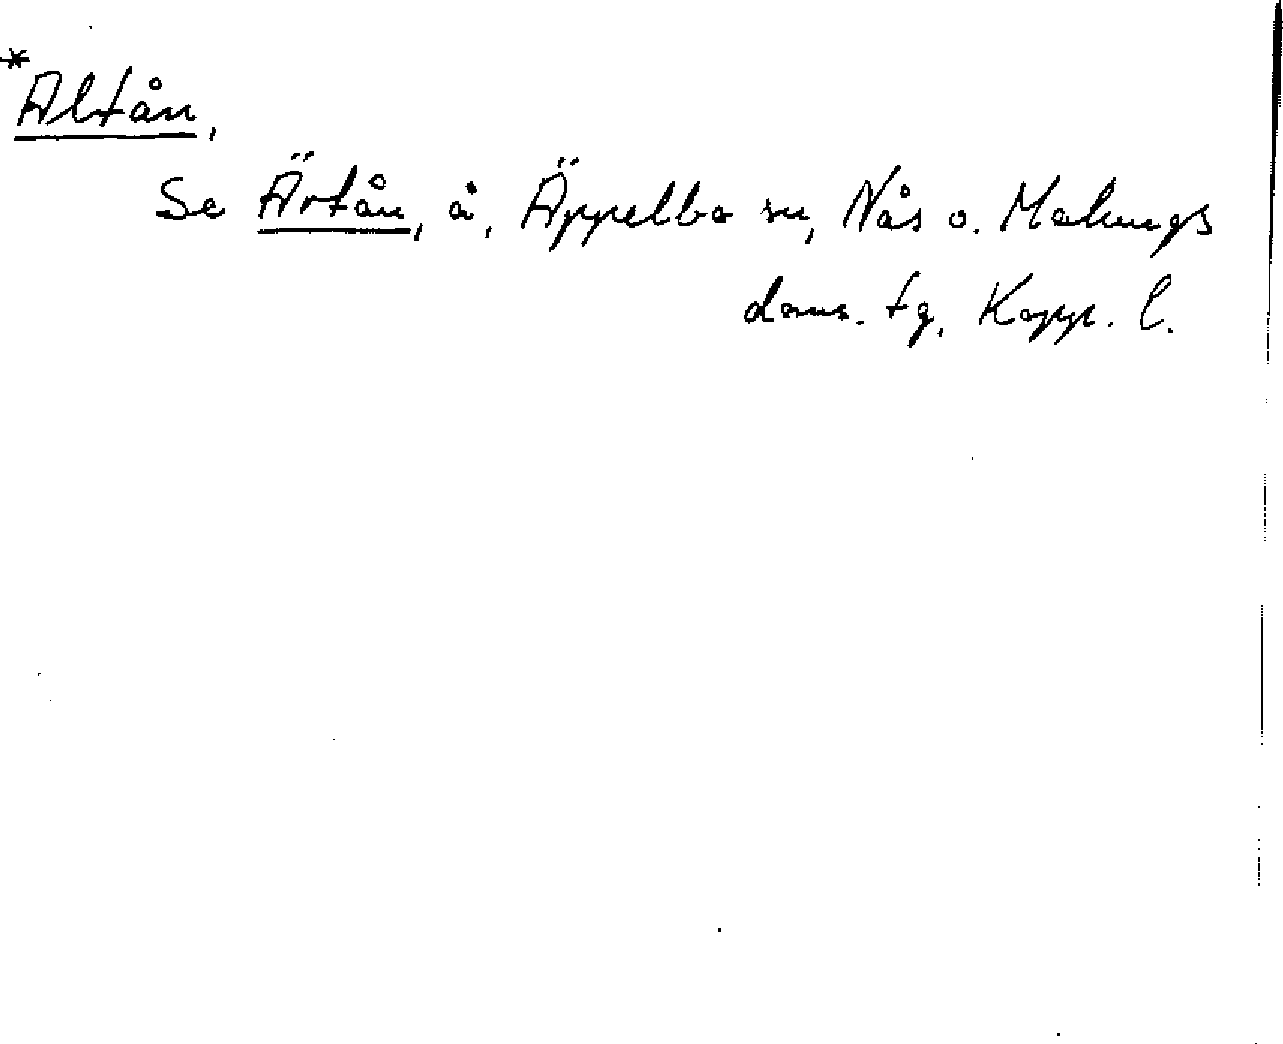 *Altån,
Se Ärtån, å, Äppelbo sn, Nås o. Malungs
doms. tg, Kopp. l.